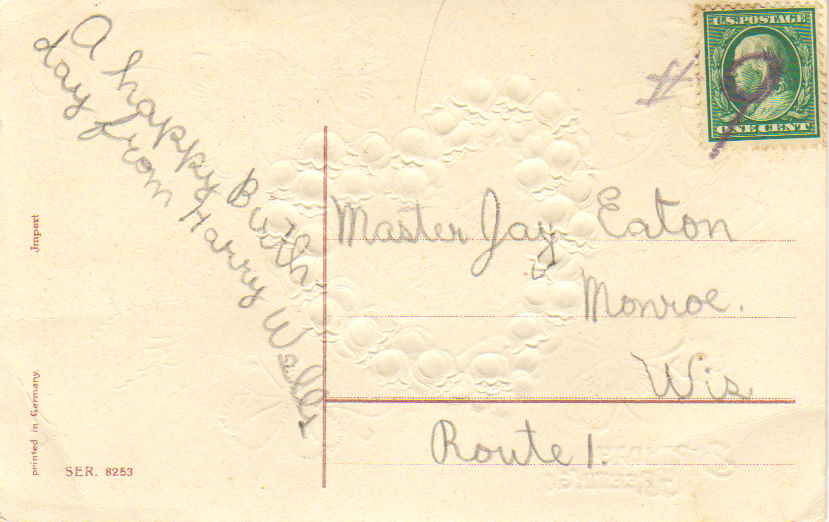 A happy Birth
day from Harry Walls
U.S. POSTAGE
ONE CENT
# 9
Master Jay Eaton
Monroe.
Wis
Route 1.
Import
printed in Germany
SER. 8253